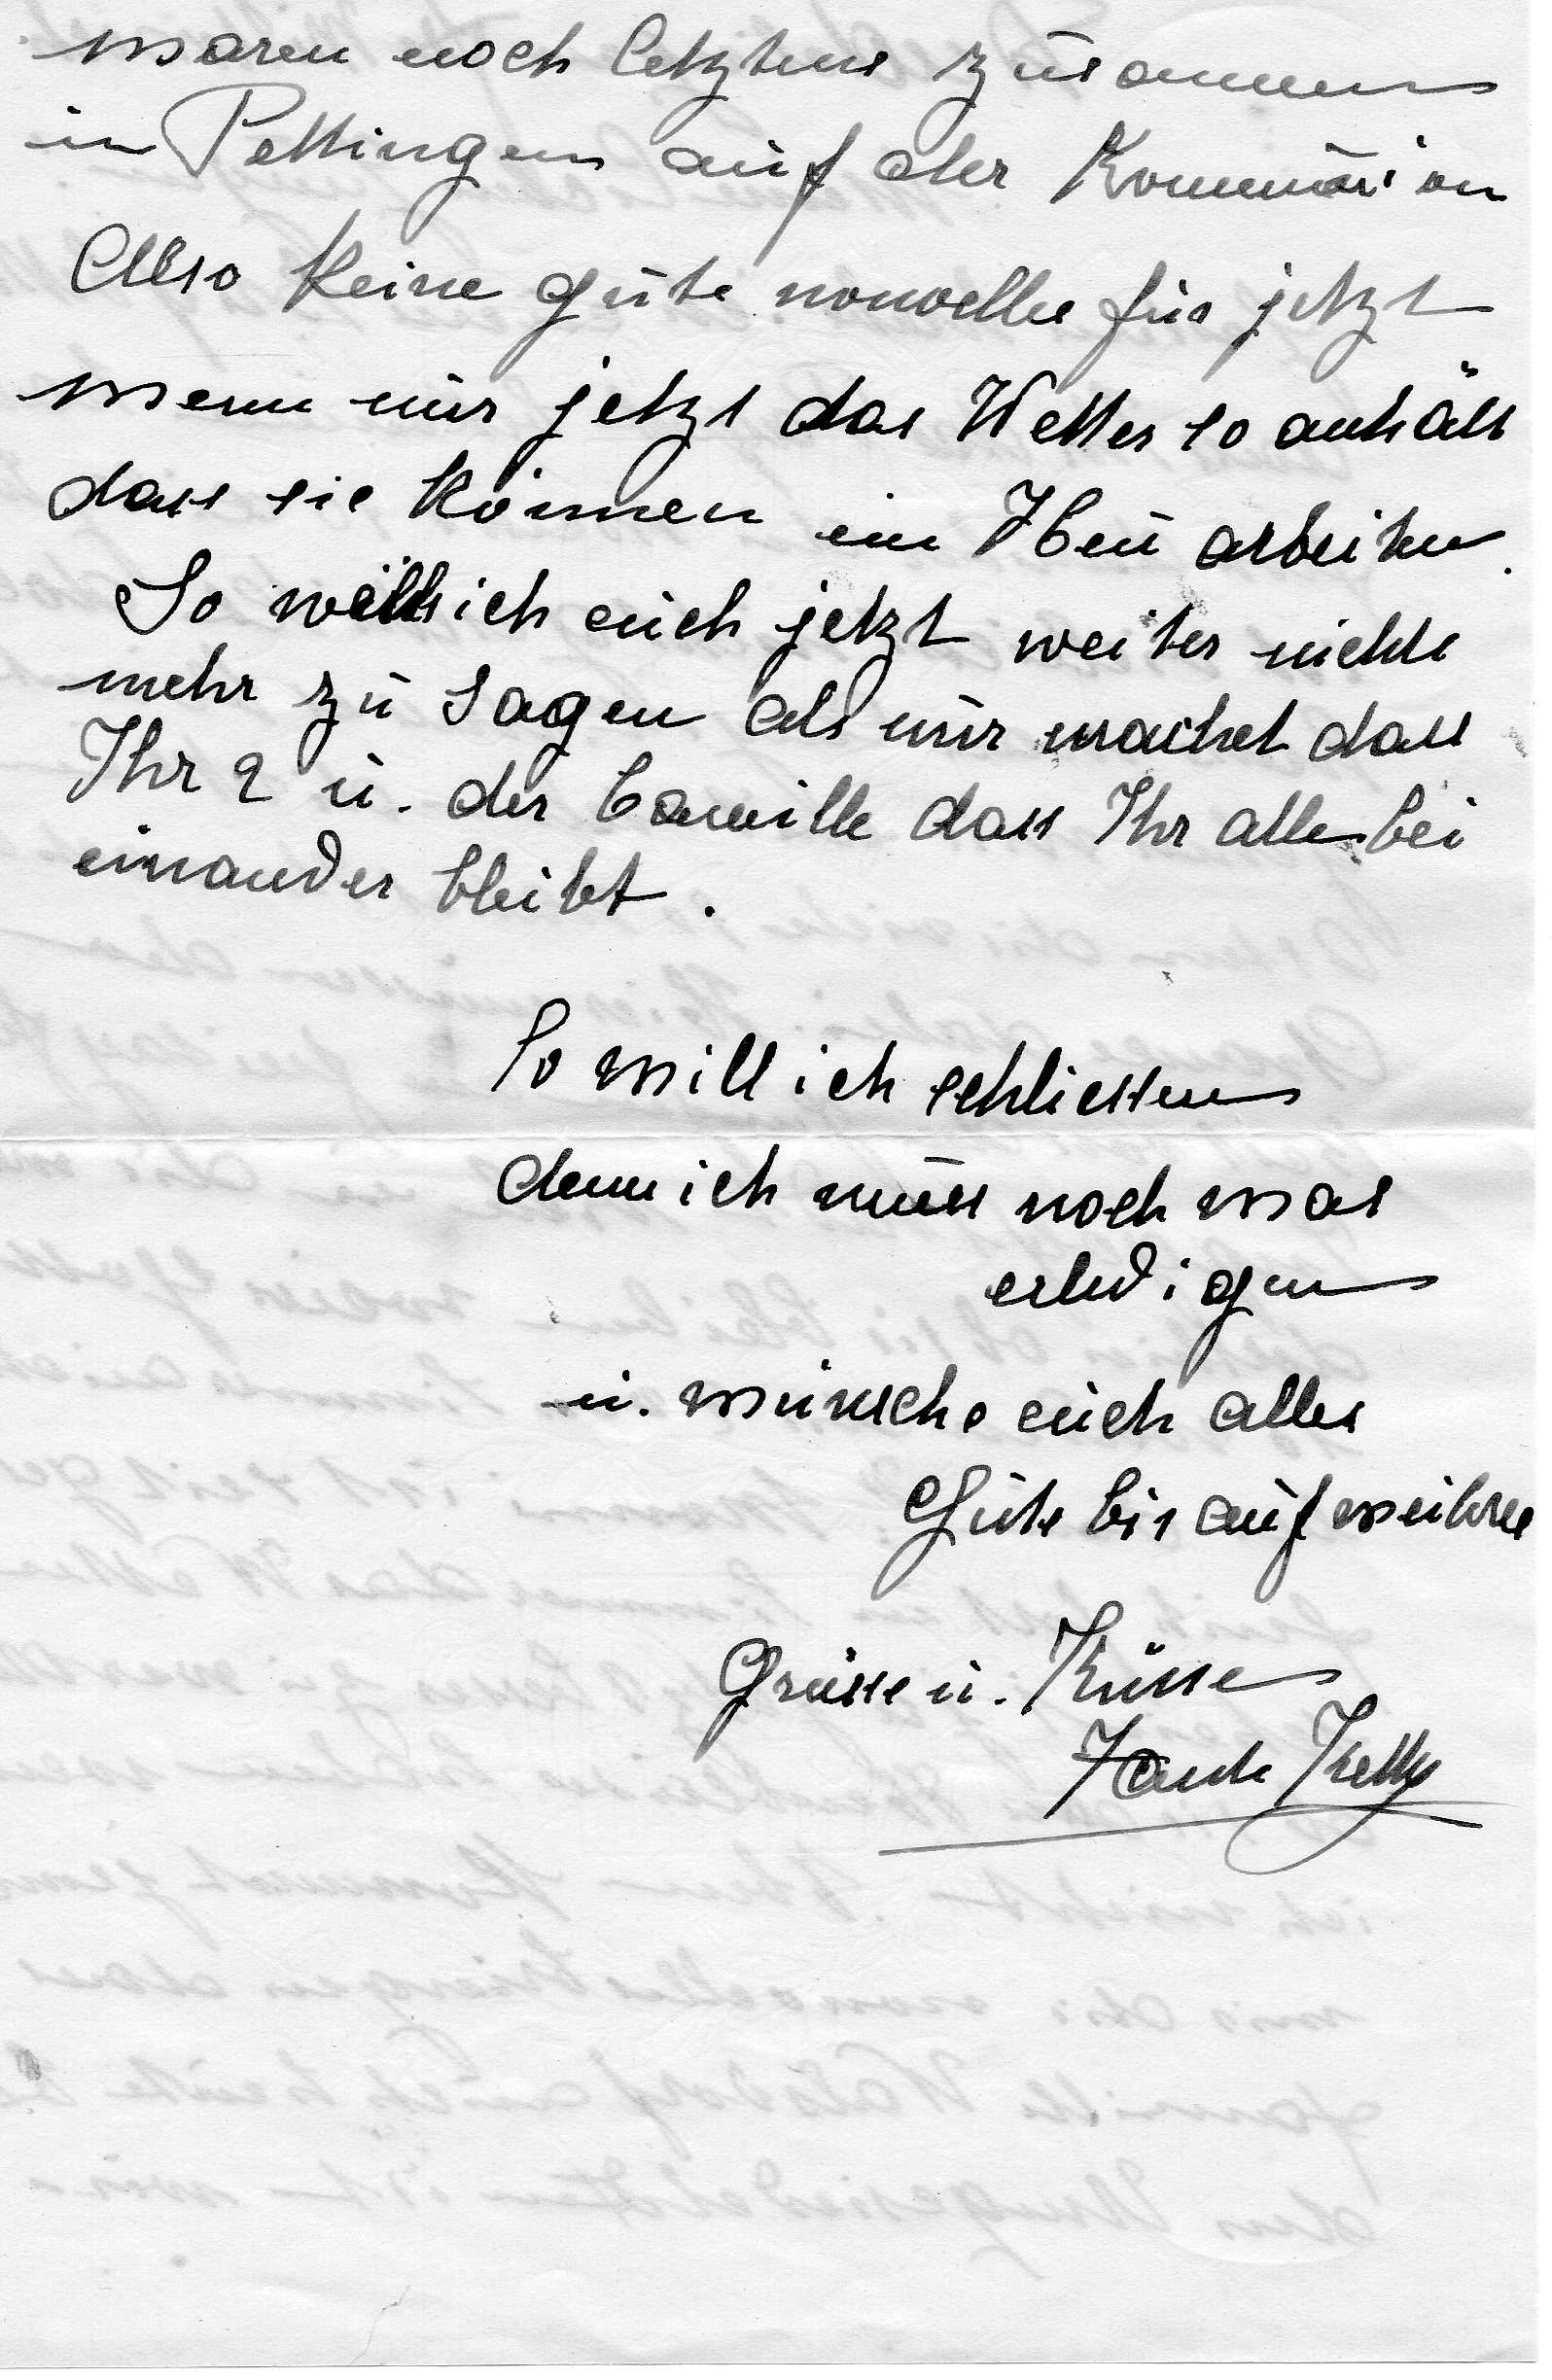 waren noch letztens zusammen
in Pettingen auf der Kommunion
Also keine gute nouvelle für jetzt
wenn nur jetzt das Wetter so anhält
dass sie können im Heu arbeiten.
So will ich euch jetzt weiter nichts
mehr zu sagen als nur machet dass
Ihr 2 u. der Camille dass Ihr alle bei
einander bleibt.
So will ich schliessen
denn ich muss noch was
erledigen
u. wünsche euch alles
Gute bis auf weitere
Grüsse u. Küsse
Tante Ketty